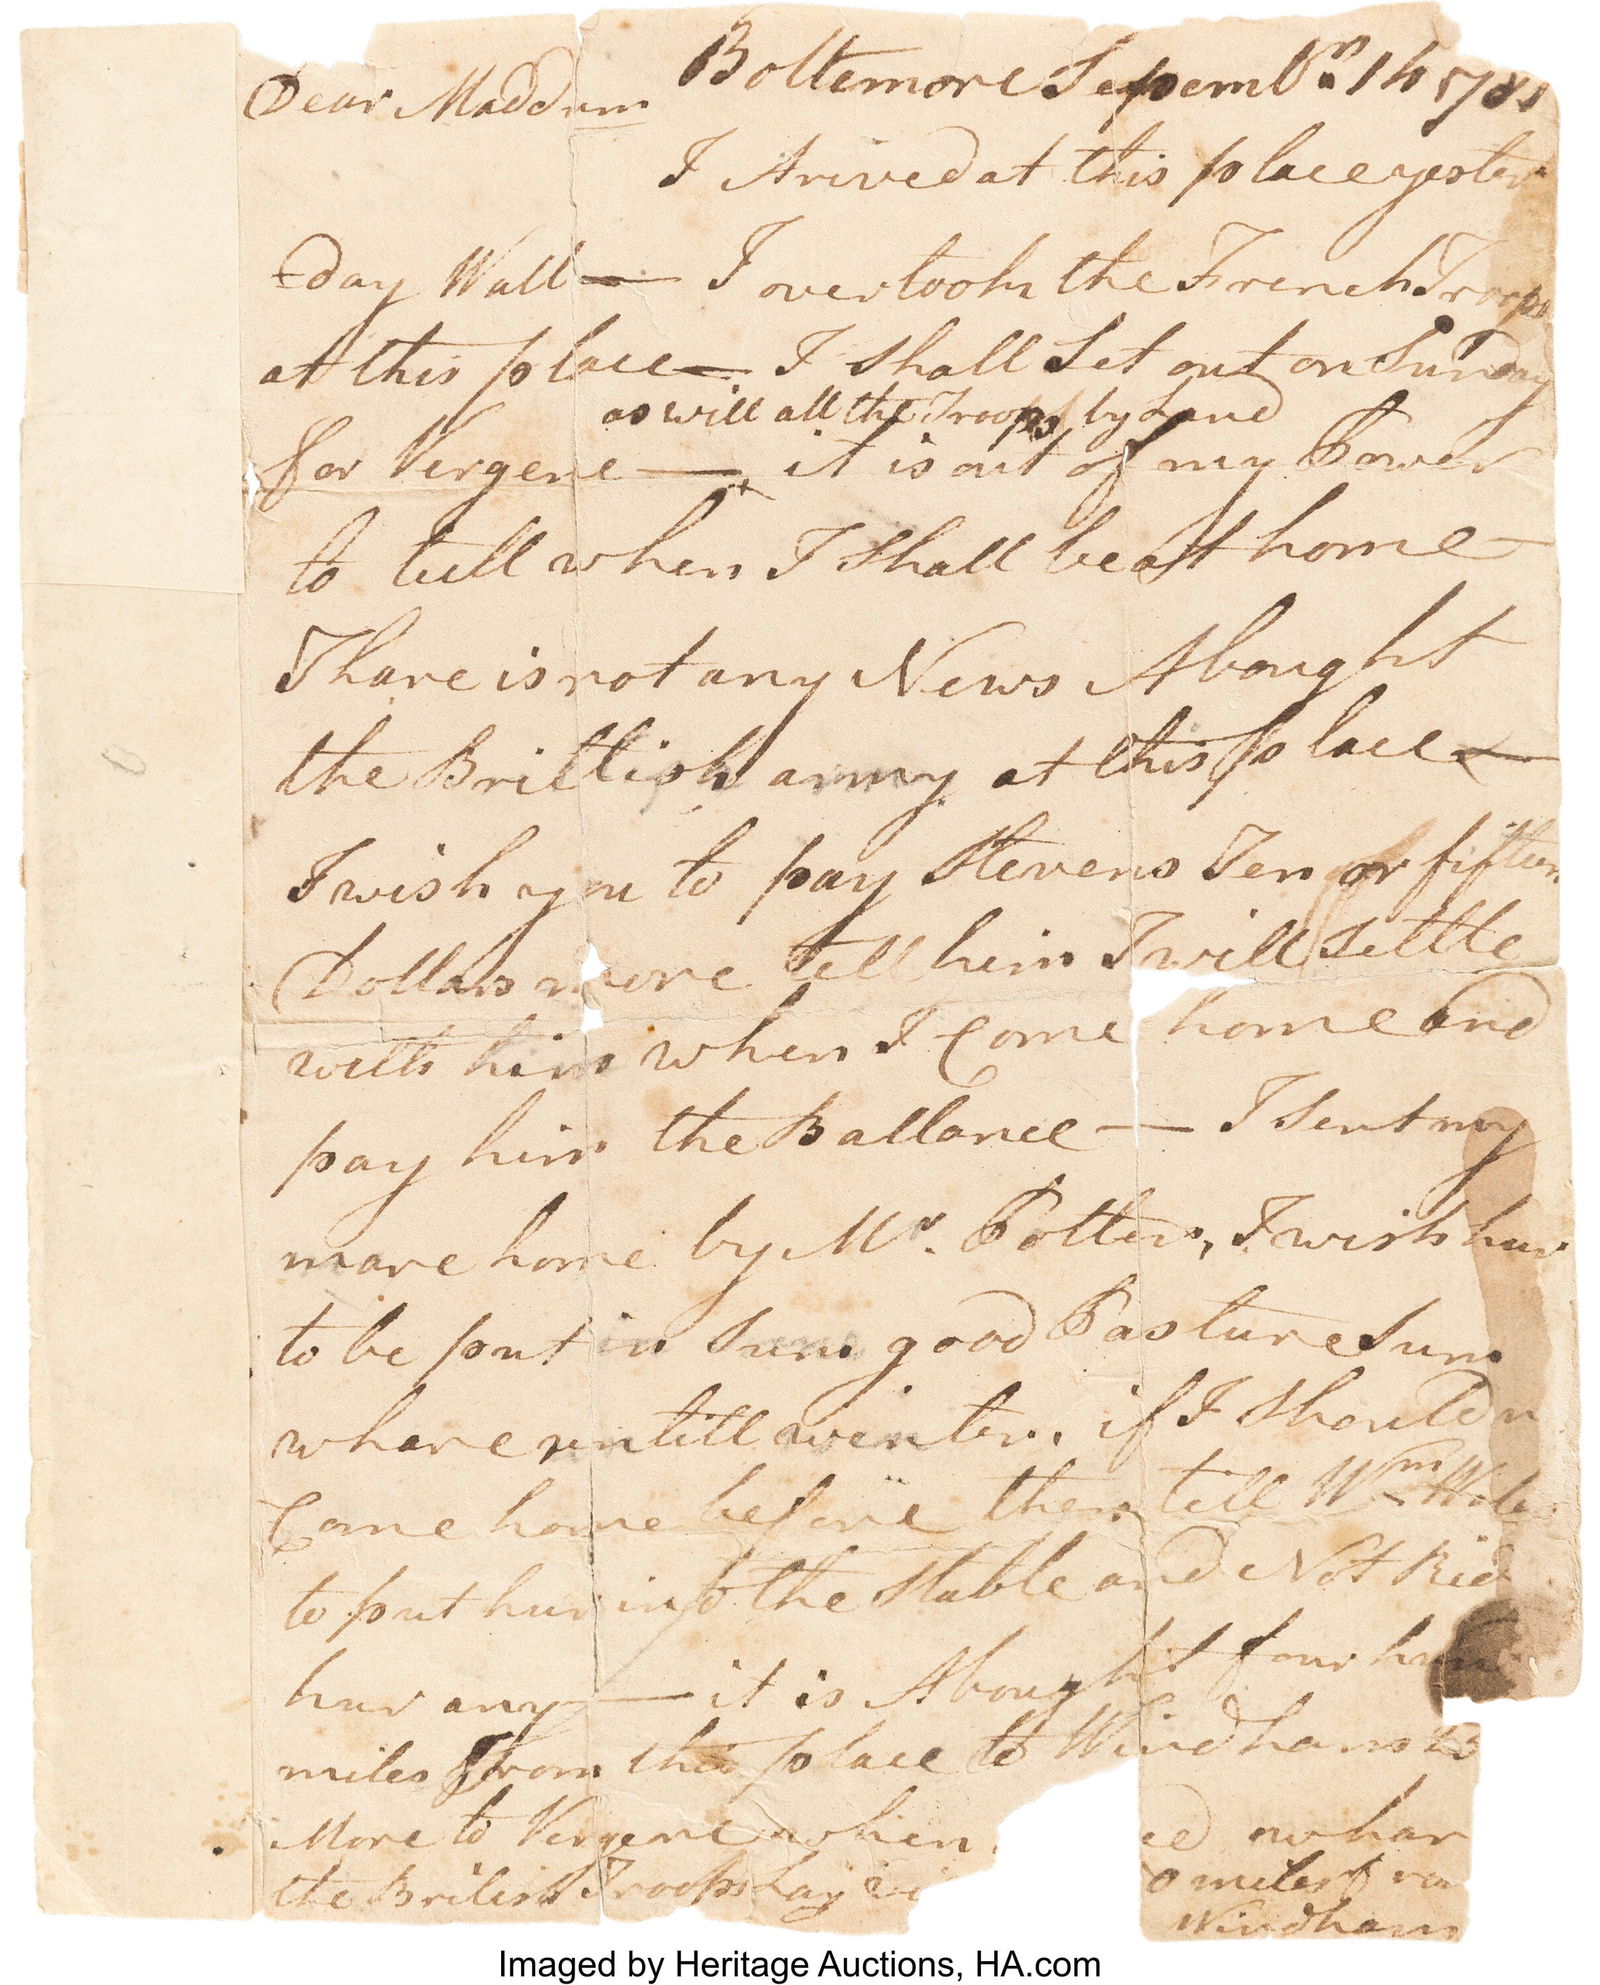 Boltemore Sepemb.r 14 1781
Dear Maddum
I Arived at this place yester
-day Wall — I overtook the French Troops
at this place — I shall Set out on Sunday
as will all the Troops by Land
for Vergene — it is out of my Power
to tell when I shall be att home —
Thare is not any News Abought
the Brittish army at this place —
I wish you to pay Stevens Ten or fifteen
Dollars more tell him I will Settle
with him when I Come home and
pay him the Ballance — I Sent my
mare home by Mr. Potter, I wish hur
to be put in Sum good Pasture Sum
whare untill winter, if I should n
Come home before then tell Wm
to put hur into the Stable and Not Rid
hur any — it is Abought four hun
miles from this place to Windham
More to Vergene when ed whar
the British Troops Lay 0 miles from
Windham
Imaged by Heritage Auctions, HA.com